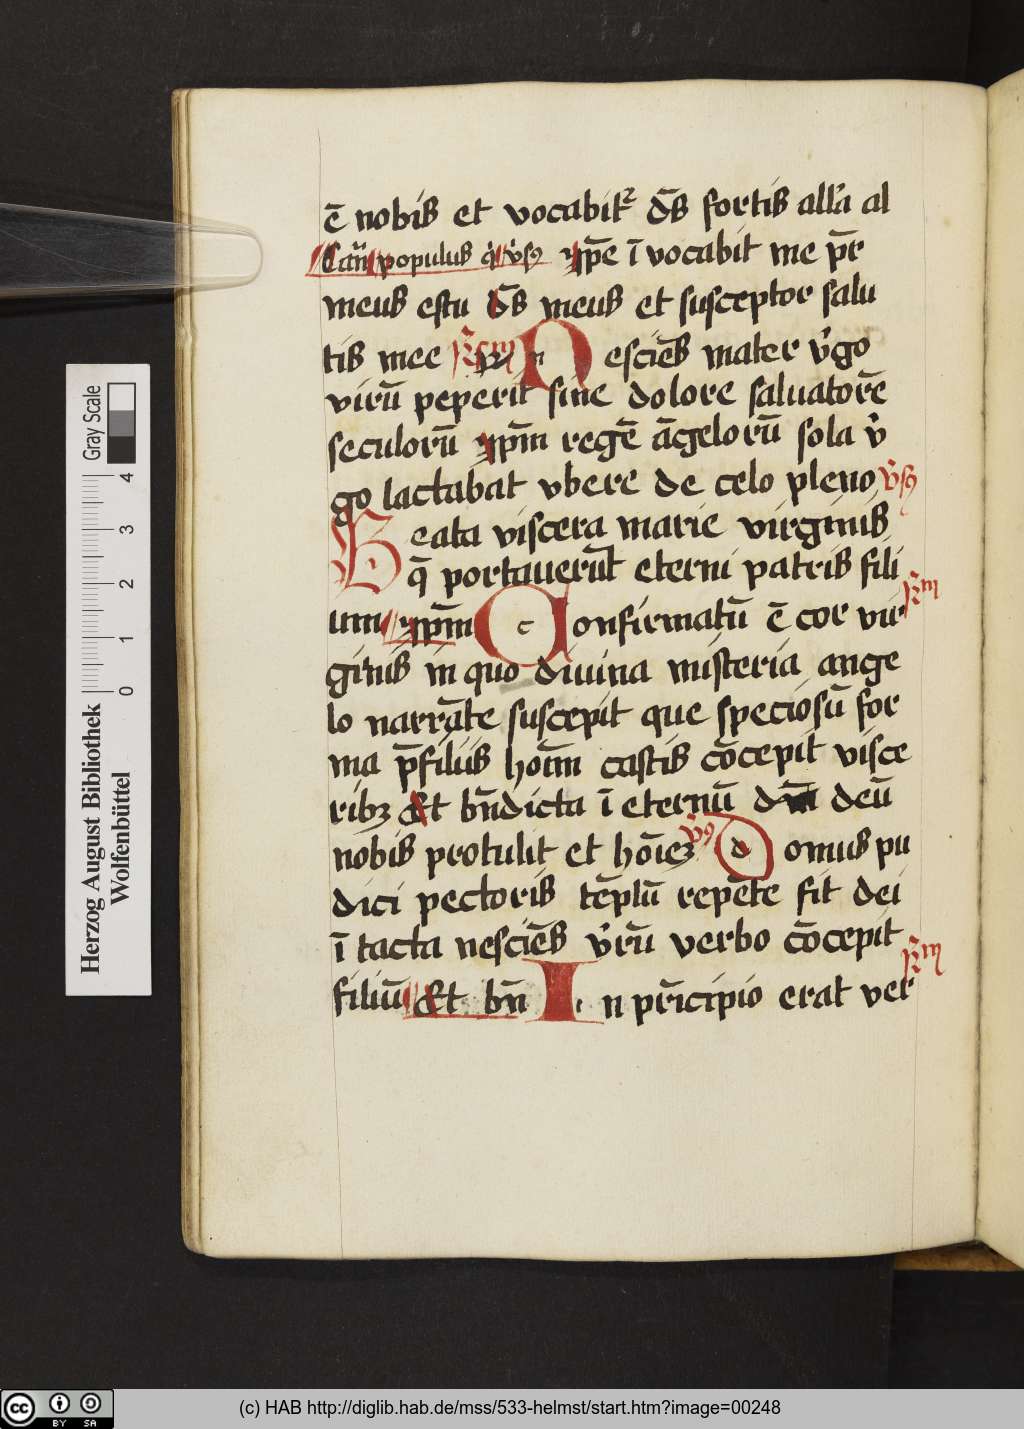 ē nobis et vocabitᷣ dn̄s fortis all'a al
Can̄ populus q̇ v̇sꝰ xp̄e ī vocabit me pr̄
meus estu dn̄s meus et susceptor salu
tis mee R̄m Nesciēs mater v̇go
virū peperit sine dolore saluatorē
seculorū xp̄m regē āgelorū sola v̇
go lactabat vbere de celo pleno v̇sꝰ
Beata viscera marie virginis
q̄ portauerūt eterni patris fili
um xp̄m Confirmatū ē cor vir R̄m
ginis in quo diuina misteria ange
lo narrāte suscepit que speciosū for
ma p̄ filiis hoīm castis cōcepit visce
ribꝫ Et bn̄dicta ī eternū deū
nobis protulit et hoīeꝫ v̇ꝰ Domus pu
dici pectoris tēplū repēte fit dei
ī tacta nesciēs v̇rū verbo cōcepit
filiū Et bn̄ In pr̄icipio erat ver R̄m
Gray Scale
0 1 2 3 4
Herzog August Bibliothek
Wolfenbüttel
cc BY SA
(c) HAB http://diglib.hab.de/mss/533-helmst/start.htm?image=00248